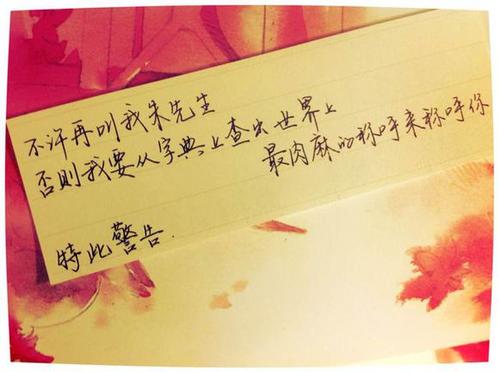 不许再叫我朱先生
否则我要从字典上查出世界上
最肉麻的称呼来称呼你
特此警告.